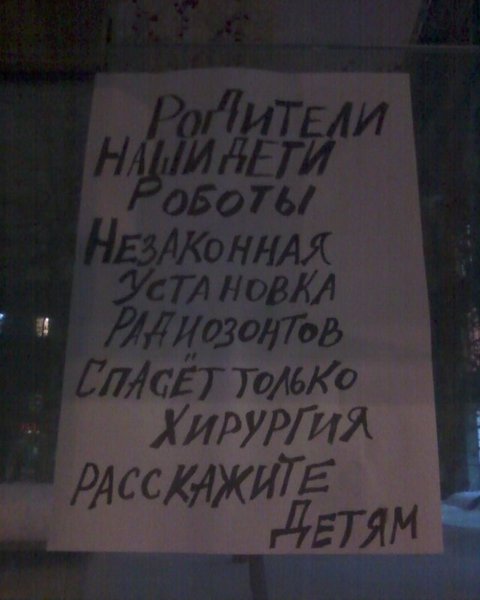 РОДИТЕЛИ
НАШИ ДЕТИ
РОБОТЫ
НЕЗАКОННАЯ
УСТАНОВКА
РАДИОЗОНТОВ
СПАСЁТ ТОЛЬКО
ХИРУРГИЯ
РАССКАЖИТЕ
ДЕТЯМ